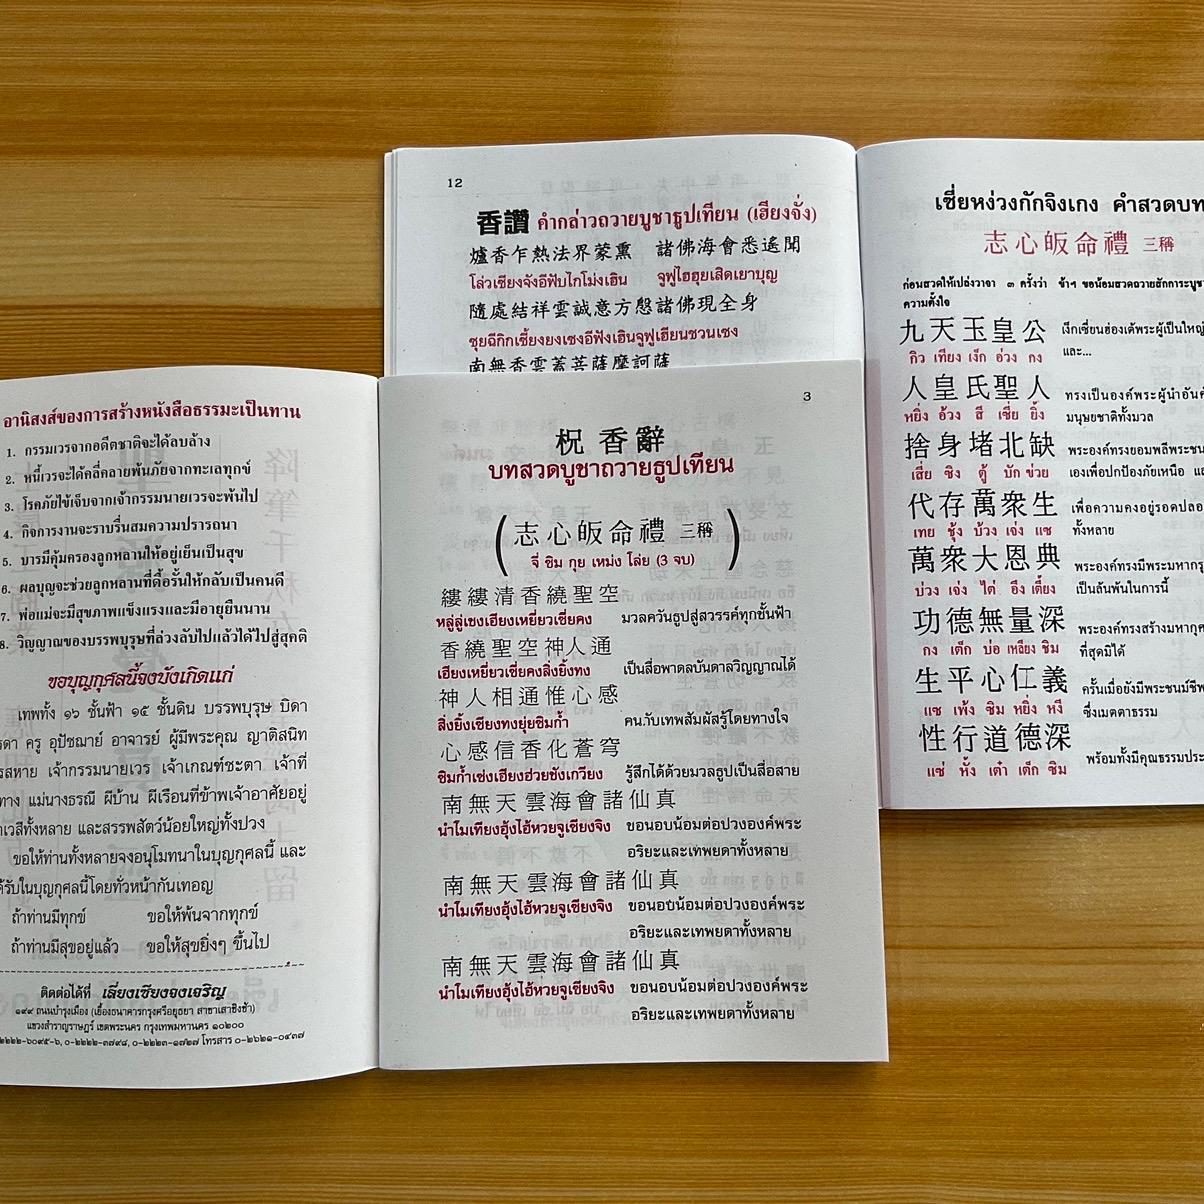 12
香讚 คำกล่าวถวายบูชาธูปเทียน (เฮียงจั่ง)
爐香乍熱法界蒙熏 諸佛海會悉遙聞
โล่วเซียงจังอีฟับไกโม่งเฮิน จูฟูไฮฮุยเสิดเยาบุญ
隨處結祥雲誠意方慇諸佛現全身
ซุยฉีกิกเซี้ยงยงเซงอีฟังเฮินจูฟูเฮียนชวนเซง
南無香雲蓋菩薩摩訶薩
เซี่ยหง่วงกักจิงเกง คำสวดบท
志心皈命禮 三稱
ก่อนสวดให้เปล่งวาจา ๓ ครั้งว่า ข้าฯ ขอน้อมสวดถวายสักการะบูชา
ความตั้งใจ
九天玉皇公 เง็กเซี่ยนฮ่องเต้พระผู้เป็นใหญ่
กิว เทียง เง็ก อ่วง กง และ...
人皇氏聖人 ทรงเป็นองค์พระผู้นำอัน
หยิ่ง อ้วง สี เซี่ย ยิ้ง มนุษยชาติทั้งมวล
捨身堵北缺 พระองค์ทรงยอมพลีพระชน
เสี่ย ซิง ตู้ บัก ข่วย เองเพื่อปกป้องภัยเหนือ
代存萬衆生 เพื่อความคงอยู่รอดปลอ
เทย ชุ้ง บ้วง เจ่ง แซ ทั้งหลาย
萬衆大恩典 พระองค์ทรงมีพระมหากรุ
บ่วง เจ่ง ไต่ อึง เตี้ยง เป็นล้นพ้นในการนี้
功德無量深 พระองค์ทรงสร้างมหากุศ
กง เต็ก บ่อ เหลียง ชิม ที่สุดมิได้
生平心仁義 ครั้นเมื่อยังมีพระชนม์ชีพ
แซ เพ้ง ซิม หยิ่ง หงี ซึ่งเมตตาธรรม
性行道德深 พร้อมทั้งมีคุณธรรมประ
แซ่ หั้ง เต๋า เต็ก ชิม
อานิสงส์ของการสร้างหนังสือธรรมะเป็นทาน
1. กรรมเวรจากอดีตชาติจะได้ลบล้าง
2. หนี้เวรจะได้คลี่คลายพ้นภัยจากทะเลทุกข์
3. โรคภัยไข้เจ็บจากเจ้ากรรมนายเวรจะพ้นไป
4. กิจการงานจะราบรื่นสมความปรารถนา
5. บารมีคุ้มครองลูกหลานให้อยู่เย็นเป็นสุข
6. ผลบุญจะช่วยลูกหลานที่ดื้อรั้นให้กลับเป็นคนดี
7. พ่อแม่จะมีสุขภาพแข็งแรงและมีอายุยืนนาน
8. วิญญาณของบรรพบุรุษที่ล่วงลับไปแล้วได้ไปสู่สุคติ
ขอบุญกุศลนี้จงบังเกิดแก่
เทพทั้ง ๑๖ ชั้นฟ้า ๑๕ ชั้นดิน บรรพบุรุษ บิดา
รดา ครู อุปัชฌาย์ อาจารย์ ผู้มีพระคุณ ญาติสนิท
รสหาย เจ้ากรรมนายเวร เจ้าเกณฑ์ชะตา เจ้าที่
ทาง แม่นางธรณี ผีบ้าน ผีเรือนที่ข้าพเจ้าอาศัยอยู่
เวสีทั้งหลาย และสรรพสัตว์น้อยใหญ่ทั้งปวง
ขอให้ท่านทั้งหลายจงอนุโมทนาในบุญกุศลนี้ และ
ด้รับในบุญกุศลนี้โดยทั่วหน้ากันเทอญ
ถ้าท่านมีทุกข์ ขอให้พ้นจากทุกข์
ถ้าท่านมีสุขอยู่แล้ว ขอให้สุขยิ่งๆ ขึ้นไป
ติดต่อได้ที่ เลี่ยงเซียงจงเจริญ
๑๙๙ ถนนบำรุงเมือง (เยื้องธนาคารกรุงศรีอยุธยา สาขาเสาชิงช้า)
แขวงสำราญราษฎร์ เขตพระนคร กรุงเทพมหานคร ๑๐๒๐๐
๒๒๒๒-๖๐๙๕-๖, ๐-๒๒๒๒-๓๗๙๘, ๐-๒๒๒๓-๑๗๒๗ โทรสาร ๐-๒๖๒๑-๐๔๓๗
3
祝香辭
บทสวดบูชาถวายธูปเทียน
(志心皈命禮 三稱)
จี่ ซิม กุย เหม่ง โล่ย (3 จบ)
縷縷清香繞聖空
หลู่ลู่เชงเฮียงเหยี่ยวเซี่ยคง มวลควันธูปสู่สวรรค์ทุกชั้นฟ้า
香繞聖空神人通
เฮียงเหยี่ยวเซี่ยคงสิ่งยิ้งทง เป็นสื่อพาดลบันดาลวิญญาณได้
神人相通惟心感
สิ่งยิ้งเซียงทงยุ่ยซิมก้ำ คนกับเทพสัมผัสรู้โดยทางใจ
心感信香化蒼穹
ซิมก้ำเซ่งเฮียงฮ่วยชังเกวียง รู้สึกได้ด้วยมวลธูปเป็นสื่อสาย
南無天雲海會諸仙真
นำไมเทียงฮุ้งไฮ้หวยจูเซียงจิง ขอนอบน้อมต่อปวงองค์พระ
อริยะและเทพยดาทั้งหลาย
南無天雲海會諸仙真
นำไมเทียงฮุ้งไฮ้หวยจูเซียงจิง ขอนอบน้อมต่อปวงองค์พระ
อริยะและเทพยดาทั้งหลาย
南無天雲海會諸仙真
นำไมเทียงฮุ้งไฮ้หวยจูเซียงจิง ขอนอบน้อมต่อปวงองค์พระ
อริยะและเทพยดาทั้งหลาย